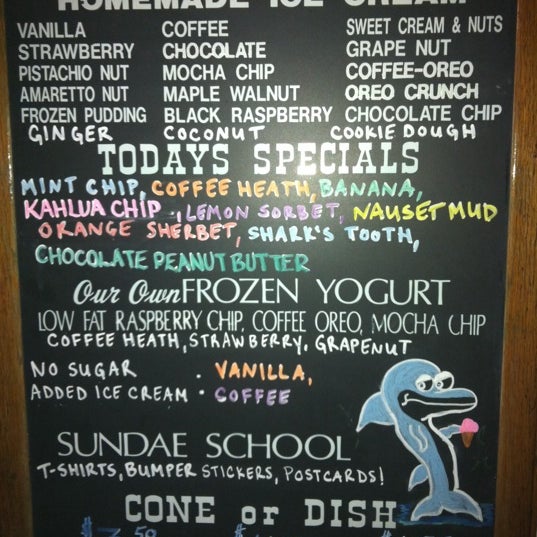 HOMEMADE ICE CREAM
VANILLA COFFEE SWEET CREAM & NUTS
STRAWBERRY CHOCOLATE GRAPE NUT
PISTACHIO NUT MOCHA CHIP COFFEE-OREO
AMARETTO NUT MAPLE WALNUT OREO CRUNCH
FROZEN PUDDING BLACK RASPBERRY CHOCOLATE CHIP
GINGER COCONUT COOKIE DOUGH
TODAYS SPECIALS
MINT CHIP, COFFEE HEATH, BANANA,
KAHLUA CHIP, LEMON SORBET, NAUSET MUD
ORANGE SHERBET, SHARK'S TOOTH,
CHOCOLATE PEANUT BUTTER
Our Own FROZEN YOGURT
LOW FAT RASPBERRY CHIP, COFFEE OREO, MOCHA CHIP
COFFEE HEATH, STRAWBERRY, GRAPENUT
NO SUGAR · VANILLA,
ADDED ICE CREAM · COFFEE
SUNDAE SCHOOL
T-SHIRTS, BUMPER STICKERS, POSTCARDS!
CONE or DISH